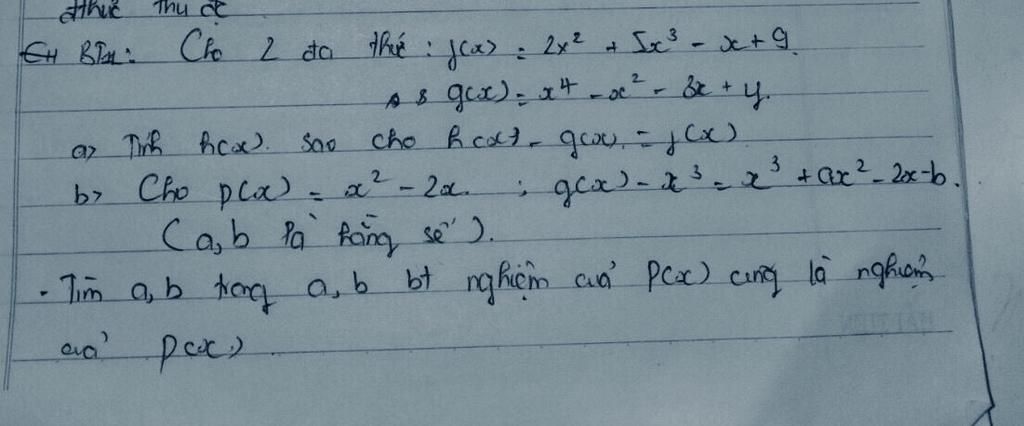 thức thu đc
BTH: Cho 2 đa thức : f(x) = 2x² + 5x³ - x + 9.
g(x) = x⁴ - x² - 3x + 4.
a) Tính h(x). sao cho h(x) - g(x) = f(x)
b) Cho p(x) = x² - 2x. ; g(x) - x³ = x³ + ax² - 2x - b.
(a,b là hằng số).
- Tìm a, b trong a, b bt nghiệm cuả P(x) cũng là nghiệm
cuả P(x)